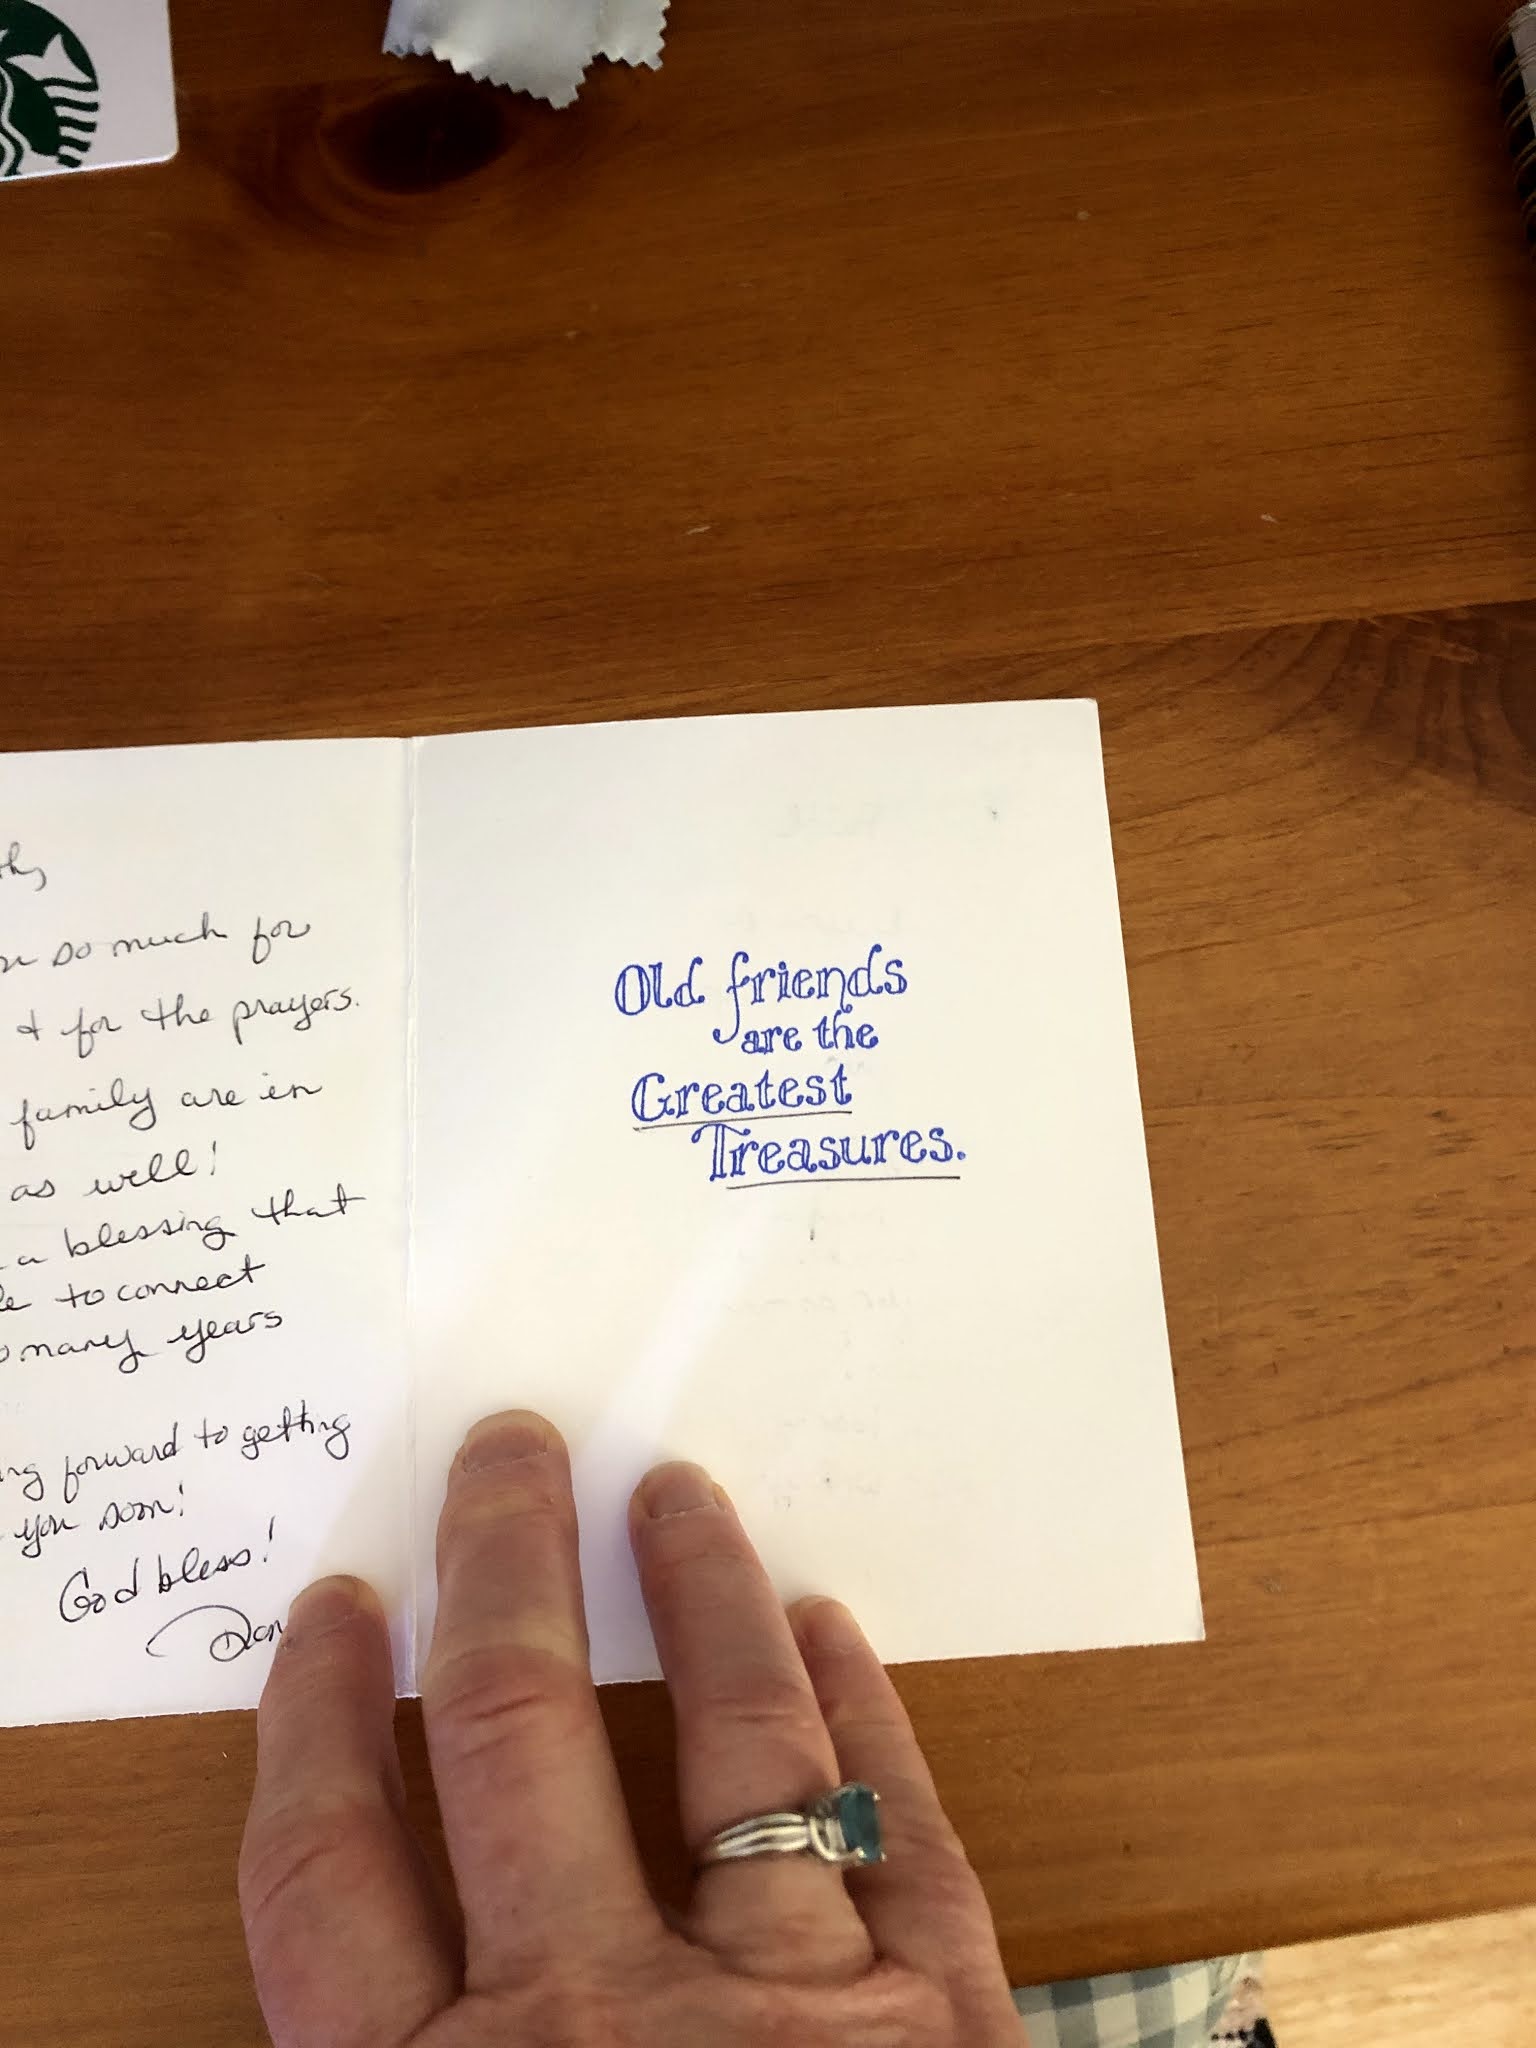 so much for
& for the prayers.
family are in
as well!
a blessing that
to connect
many years
forward to getting
you soon!
God bless!
Old friends
are the
Greatest
Treasures.